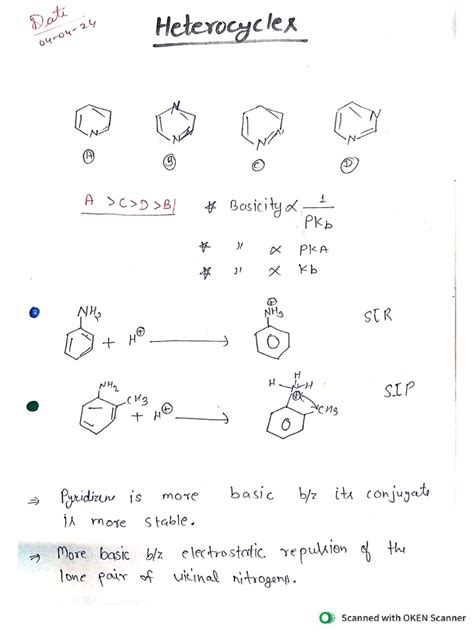 Date
04-04-24
Heterocycles
N
N
N
N
N
N
N
A
B
C
D
A > C > D > B
* Basicity ∝ 1
PKb
* " ∝ PKA
* " ∝ Kb
NH2
+ H⊕
⊕
NH3
SIR
NH2
CH3
+ H⊕
H
H N H
⊕
CH3
SIP
⇒ Pyridizne is more basic b/z its conjugate
is more stable.
⇒ More basic b/z electrostatic repulsion of the
lone pair of vicinal nitrogens.
Scanned with OKEN Scanner